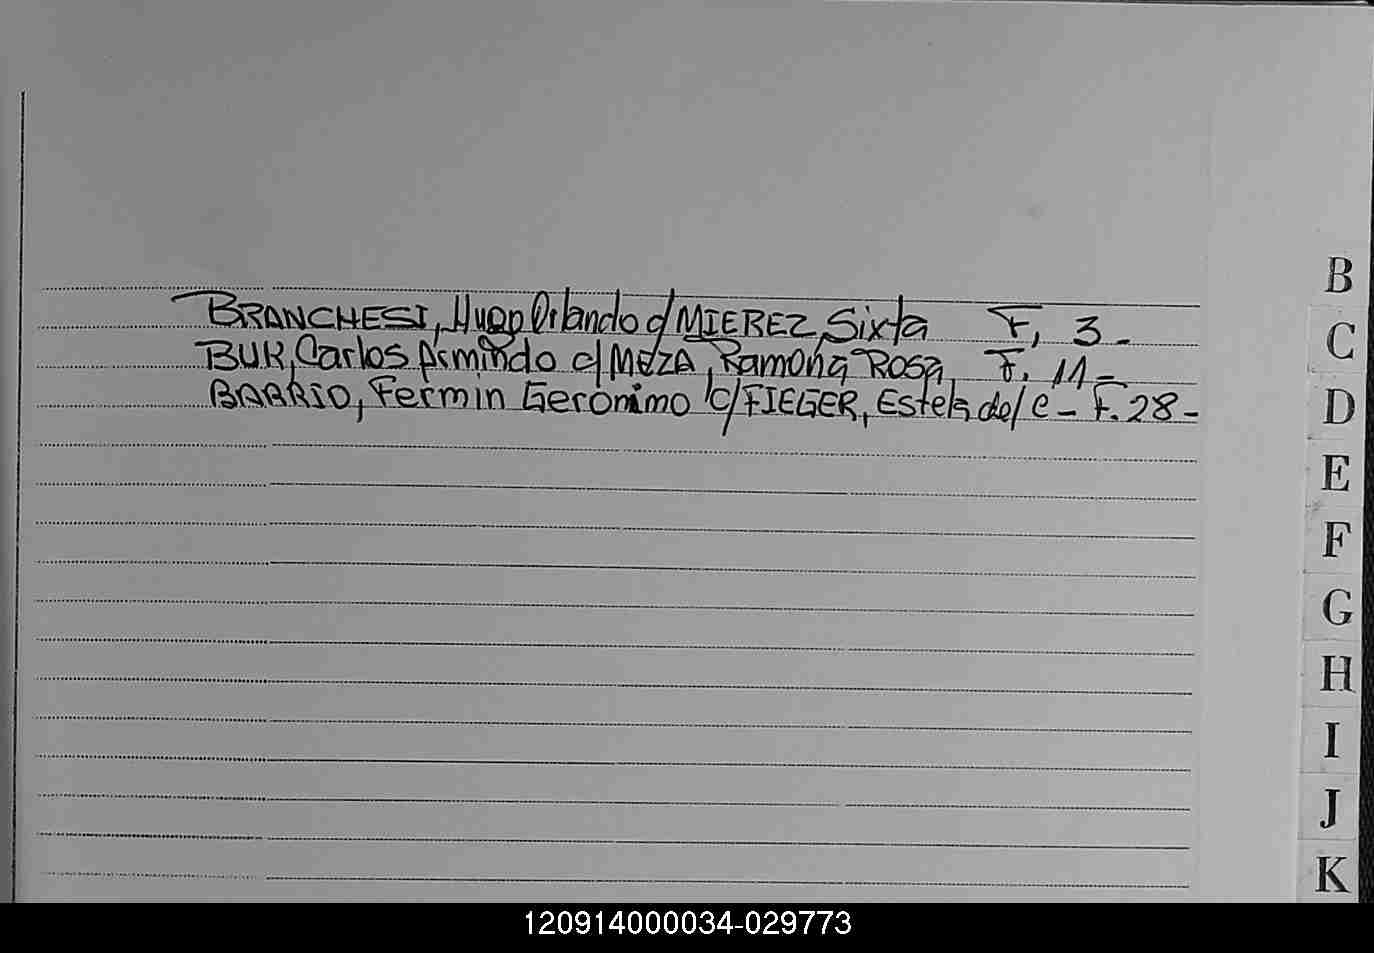 BRANCHESI, Hugo Orlando c/ MIEREZ, Sixta F, 3.-
BUK, Carlos Armindo c/ MEZA, Ramona ROSA, F. 11-
BARRIO, Fermin Geronimo c/ FIEGER, Estela del C - F. 28-
B
C
D
E
F
G
H
I
J
K
120914000034-029773